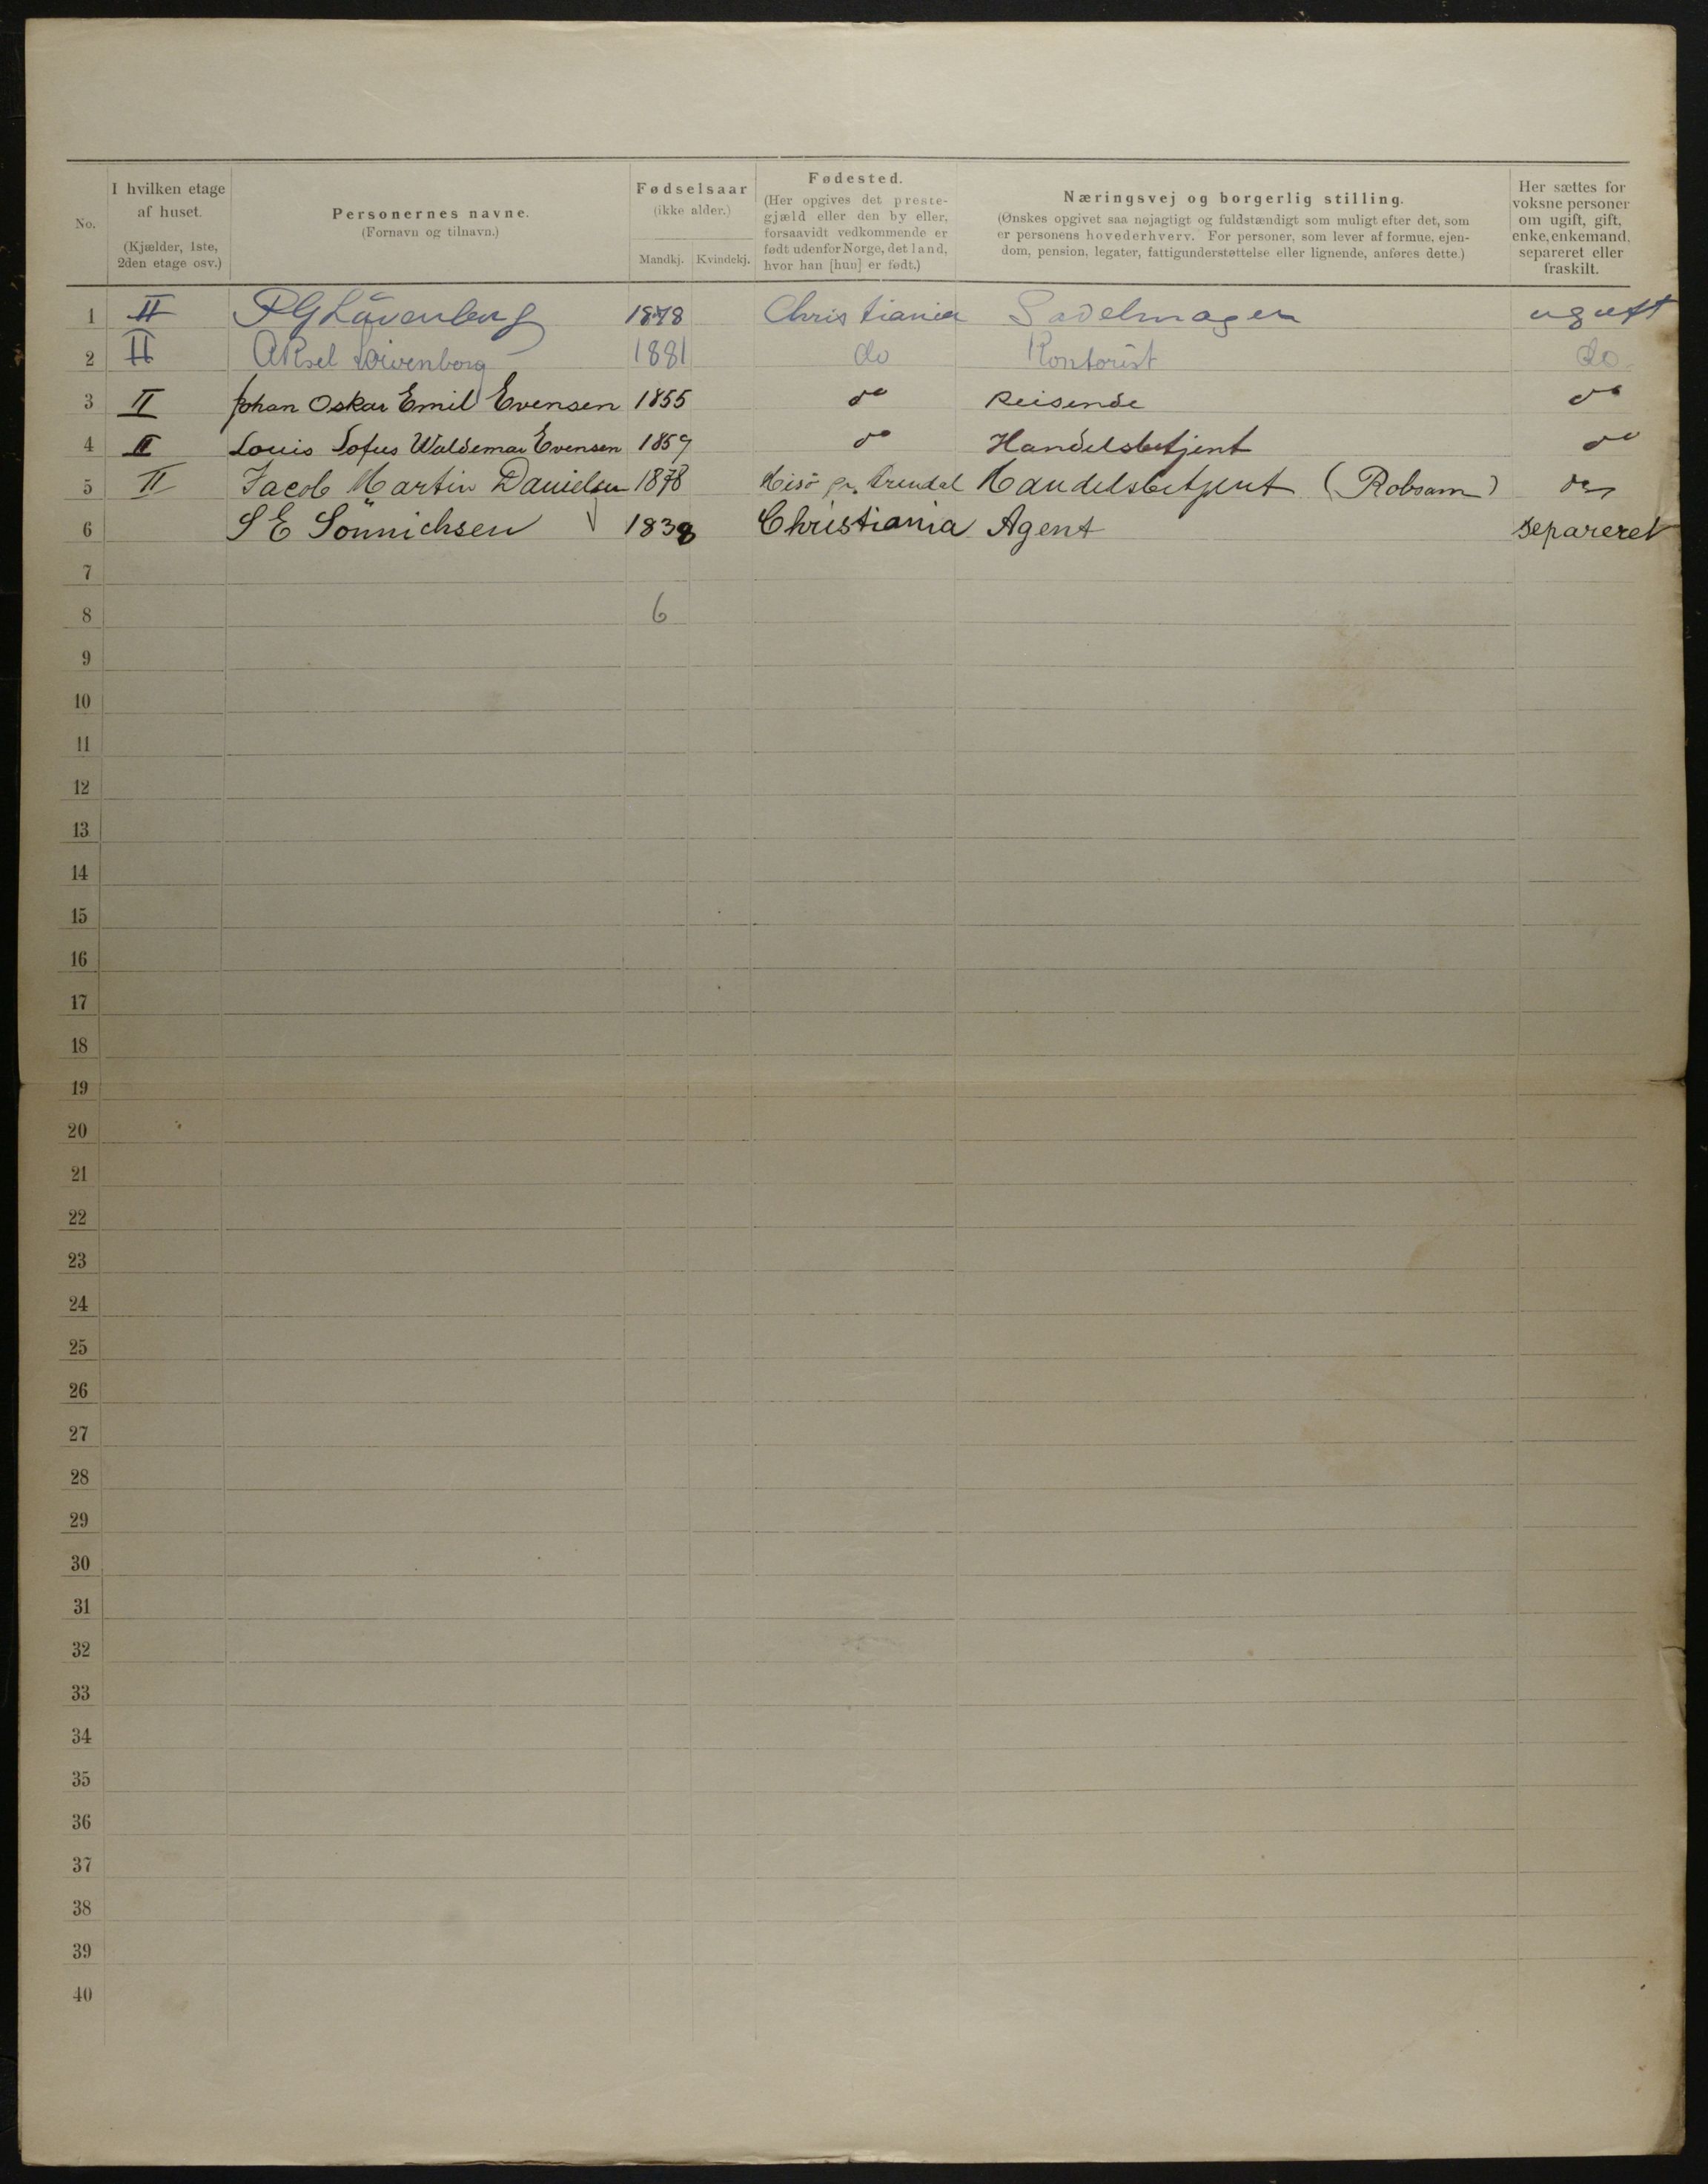 No.
I hvilken etage af huset. (Kjælder, 1ste, 2den etage osv.)
Personernes navne. (Fornavn og tilnavn.)
Fødselsaar (ikke alder.)
Mandkj. Kvindekj.
Fødested. (Her opgives det prestegjæld eller den by eller, forsaavidt vedkommende er født udenfor Norge, det land, hvor han [hun] er født.)
Næringsvej og borgerlig stilling.
(Ønskes opgivet saa nøjagtigt og fuldstændigt som muligt efter det, som er personens hovederhverv. For personer, som lever af formue, ejendom, pension, legater, fattigunderstøttelse eller lignende, anføres dette.)
Her sættes for voksne personer om ugift, gift, enke, enkemand, separeret eller fraskilt.
1 II Lövenberg 1878 Christiania Sadelmager ugift
2 II Aksel 1881 do Kontorist do
3 II Johan Oskar Emil Evensen 1855 do Reisende do
4 II Louis Sofus Waldemar Evensen 1859 do Handelsbetjent do
5 II Jacob Martin Danielsen 1878 Hisö pr. Arendal Handelsbetjent (Robsam) do
6 S E Sönnichsen 1838 Christiania Agent separeret
7
8 6
9
10
11
12
13
14
15
16
17
18
19
20
21
22
23
24
25
26
27
28
29
30
31
32
33
34
35
36
37
38
39
40